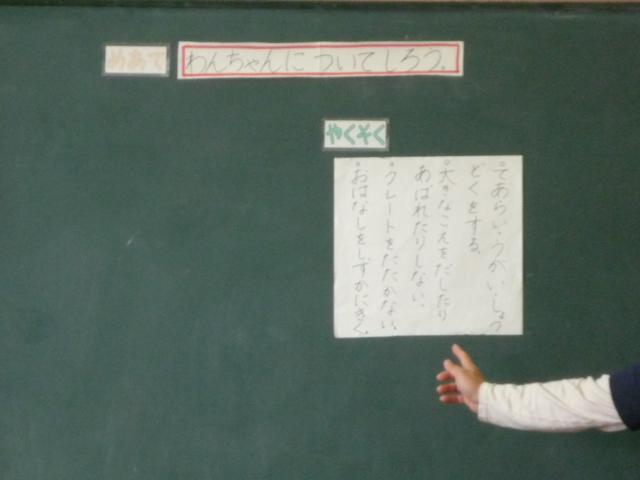 めあて
わんちゃんについてしろう。
やくそく
。てあらい、うがい、しょう
どくをする。
。大きなこえをだしたり
あばれたりしない。
。クレートをたたかない。
。おはなしをしずかにきく。